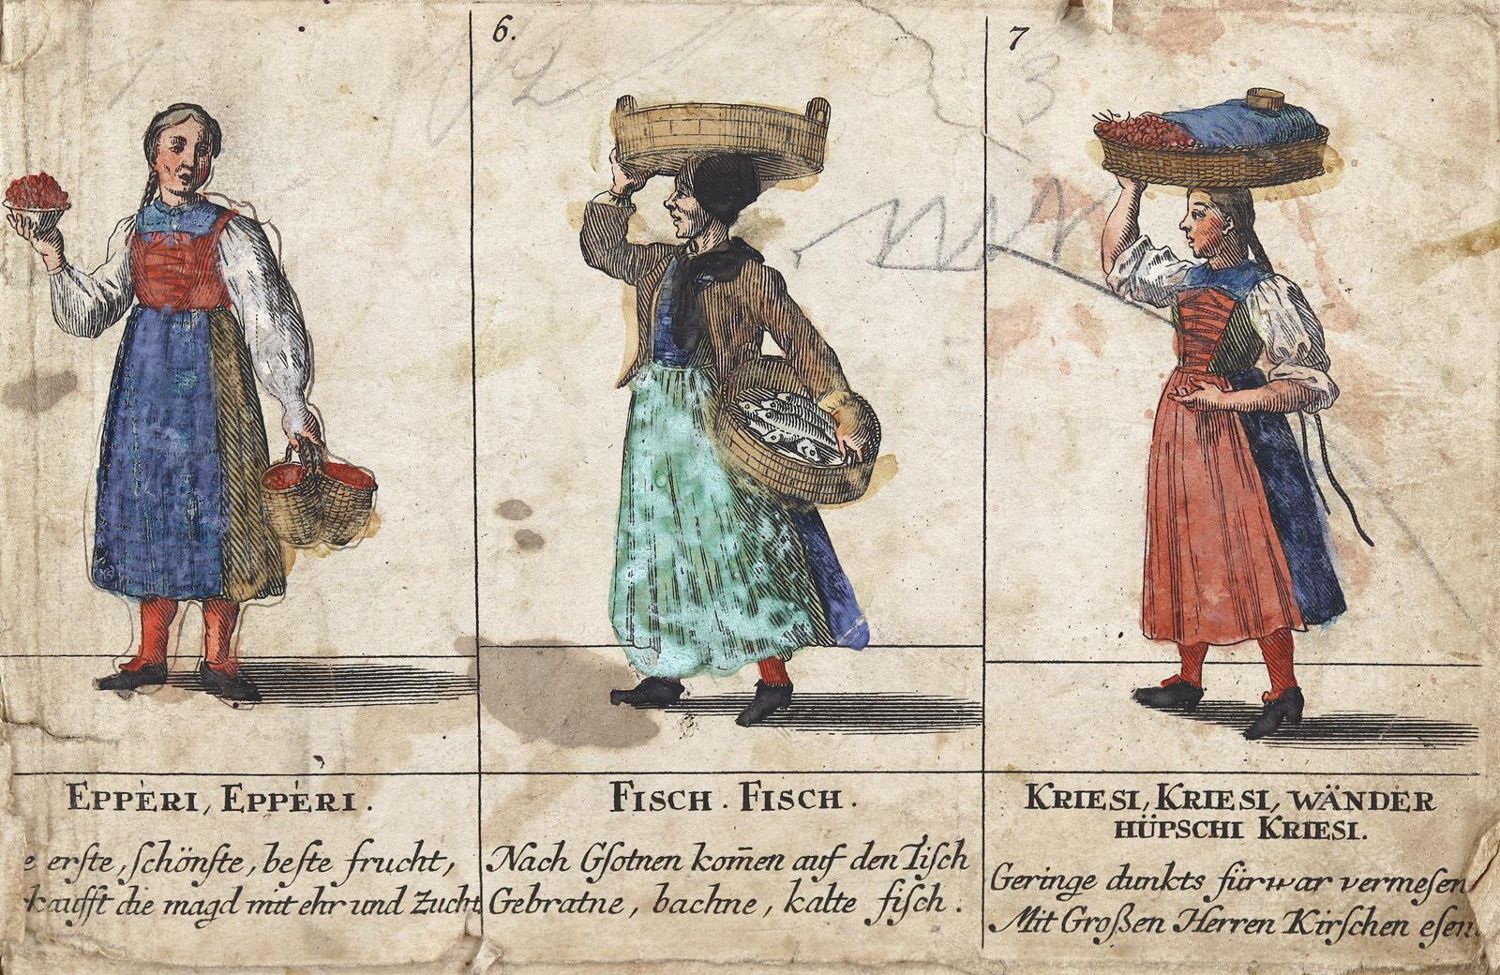 EPPÈRI, EPPÈRI.
erſte, ſchönſte, beſte frucht,
kaufft die magd mit ehr und Zucht
6.
FISCH. FISCH.
Nach Gſotnen kom̄en auf den Tiſch
Gebratne, bachne, kalte fiſch.
7
3
KRIESI, KRIESI, WÄNDER
HÜPSCHI KRIESI.
Geringe dunkts fürwar vermeſen
Mit Großen Herren Kirſchen eſen.